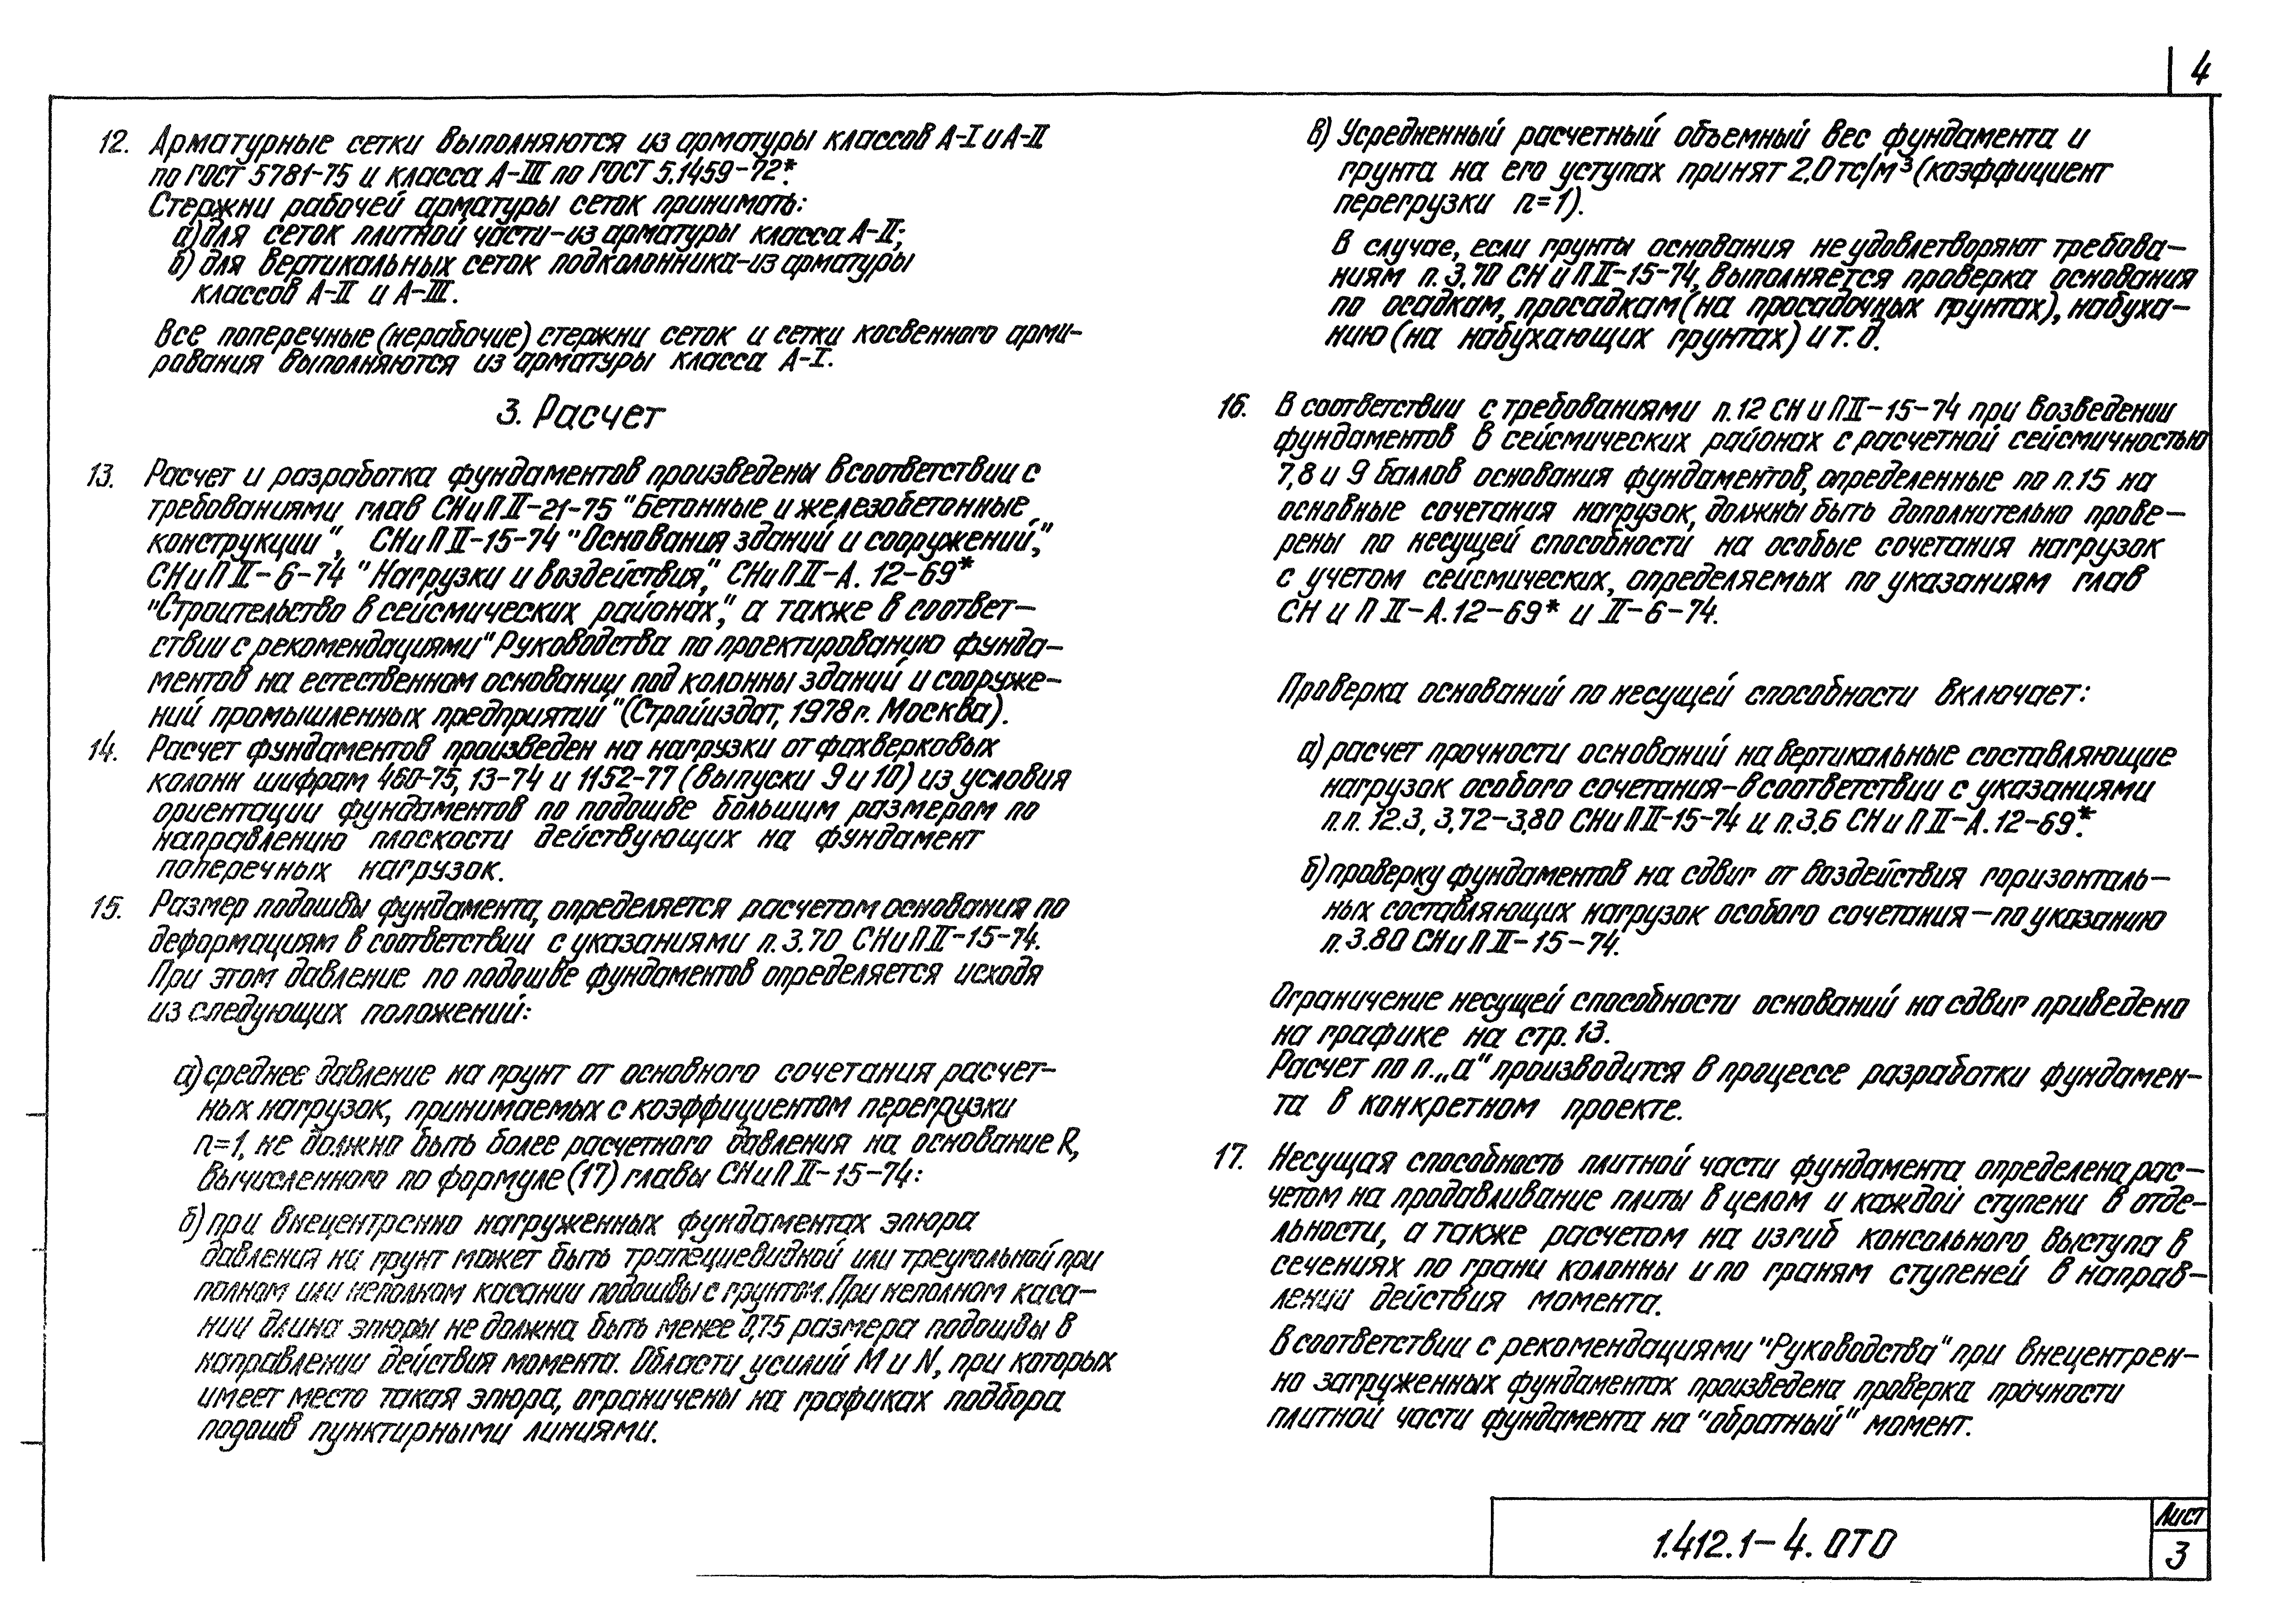 4
12. Арматурные сетки выполняются из арматуры классов А-I и А-II
по ГОСТ 5781-75 и класса А-III по ГОСТ 5.1459-72*.
Стержни рабочей арматуры сеток принимать:
а) для сеток плитной части-из арматуры класса А-II;
б) для вертикальных сеток подколонника-из арматуры
классов А-II и А-III.
Все поперечные (нерабочие) стержни сеток и сетки косвенного арми-
рования выполняются из арматуры класса А-I.
3. Расчет
13. Расчет и разработка фундаментов произведены в соответствии с
требованиями глав СНиП II-21-75 "Бетонные и железобетонные
конструкции", СНиП II-15-74 "Основания зданий и сооружений",
СНиП II-6-74 "Нагрузки и воздействия", СНиП II-А.12-69*
"Строительство в сейсмических районах", а также в соответ-
ствии с рекомендациями "Руководства по проектированию фунда-
ментов на естественном основании под колонны зданий и сооруже-
ний промышленных предприятий" (Стройиздат, 1978 г. Москва).
14. Расчет фундаментов произведен на нагрузки от фахверковых
колонн шифрам 460-75, 13-74 и 1152-77 (выпуски 9 и 10) из условия
ориентации фундаментов по подошве большим размером по
направлению плоскости действующих на фундамент
поперечных нагрузок.
15. Размер подошвы фундамента, определяется расчетом основания по
деформациям в соответствии с указаниями п. 3.70 СНиП II-15-74.
При этом давление по подошве фундаментов определяется исходя
из следующих положений:
а) среднее давление на грунт от основного сочетания расчет-
ных нагрузок, принимаемых с коэффициентом перегрузки
n=1, не должно быть более расчетного давления на основание R,
вычисленного по формуле (17) главы СНиП II-15-74:
б) при внецентренно нагруженных фундаментах эпюра
давления на грунт может быть трапециевидной или треугольной при
полном или неполном касании подошвы с грунтом. При неполном каса-
нии длина эпюры не должна быть менее 0,75 размера подошвы в
направлении действия момента. Области усилий М и N, при которых
имеет место такая эпюра, ограничены на графиках подбора
подошв пунктирными линиями.
в) Усредненный расчетный объемный вес фундамента и
грунта на его уступах принят 2,0 тс/м³ (коэффициент
перегрузки n=1).
В случае, если грунты основания не удовлетворяют требова-
ниям п. 3.70 СНиП II-15-74, выполняется проверка основания
по осадкам, просадкам (на просадочных грунтах), набуха-
нию (на набухающих грунтах) и т. д.
16. В соответствии с требованиями п.12 СНиП II-15-74 при возведении
фундаментов в сейсмических районах с расчетной сейсмичностью
7,8 и 9 баллов основания фундаментов, определенные по п.15 на
основные сочетания нагрузок, должны быть дополнительно прове-
рены по несущей способности на особые сочетания нагрузок
с учетом сейсмических, определяемых по указаниям глав
СНиП II-А.12-69* и II-6-74.
Проверка оснований по несущей способности включает:
а) расчет прочности оснований на вертикальные составляющие
нагрузок особого сочетания-в соответствии с указаниями
п.п. 12.3, 3.72-3.80 СНиП II-15-74 и п.3.6 СНиП II-А.12-69*.
б) проверку фундаментов на сдвиг от воздействия горизонталь-
ных составляющих нагрузок особого сочетания-по указанию
п.3.80 СНиП II-15-74.
Ограничение несущей способности оснований на сдвиг приведено
на графике на стр. 13.
Расчет по п. „а" производится в процессе разработки фундамен-
та в конкретном проекте.
17. Несущая способность плитной части фундамента определена рас-
четом на продавливание плиты в целом и каждой ступени в отде-
льности, а также расчетом на изгиб консольного выступа в
сечениях по грани колонны и по граням ступеней в направ-
лении действия момента.
В соответствии с рекомендациями "Руководства" при внецентрен-
но загруженных фундаментах произведена проверка прочности
плитной части фундамента на "обратный" момент.
1.412.1-4. ОТО
Лист
3